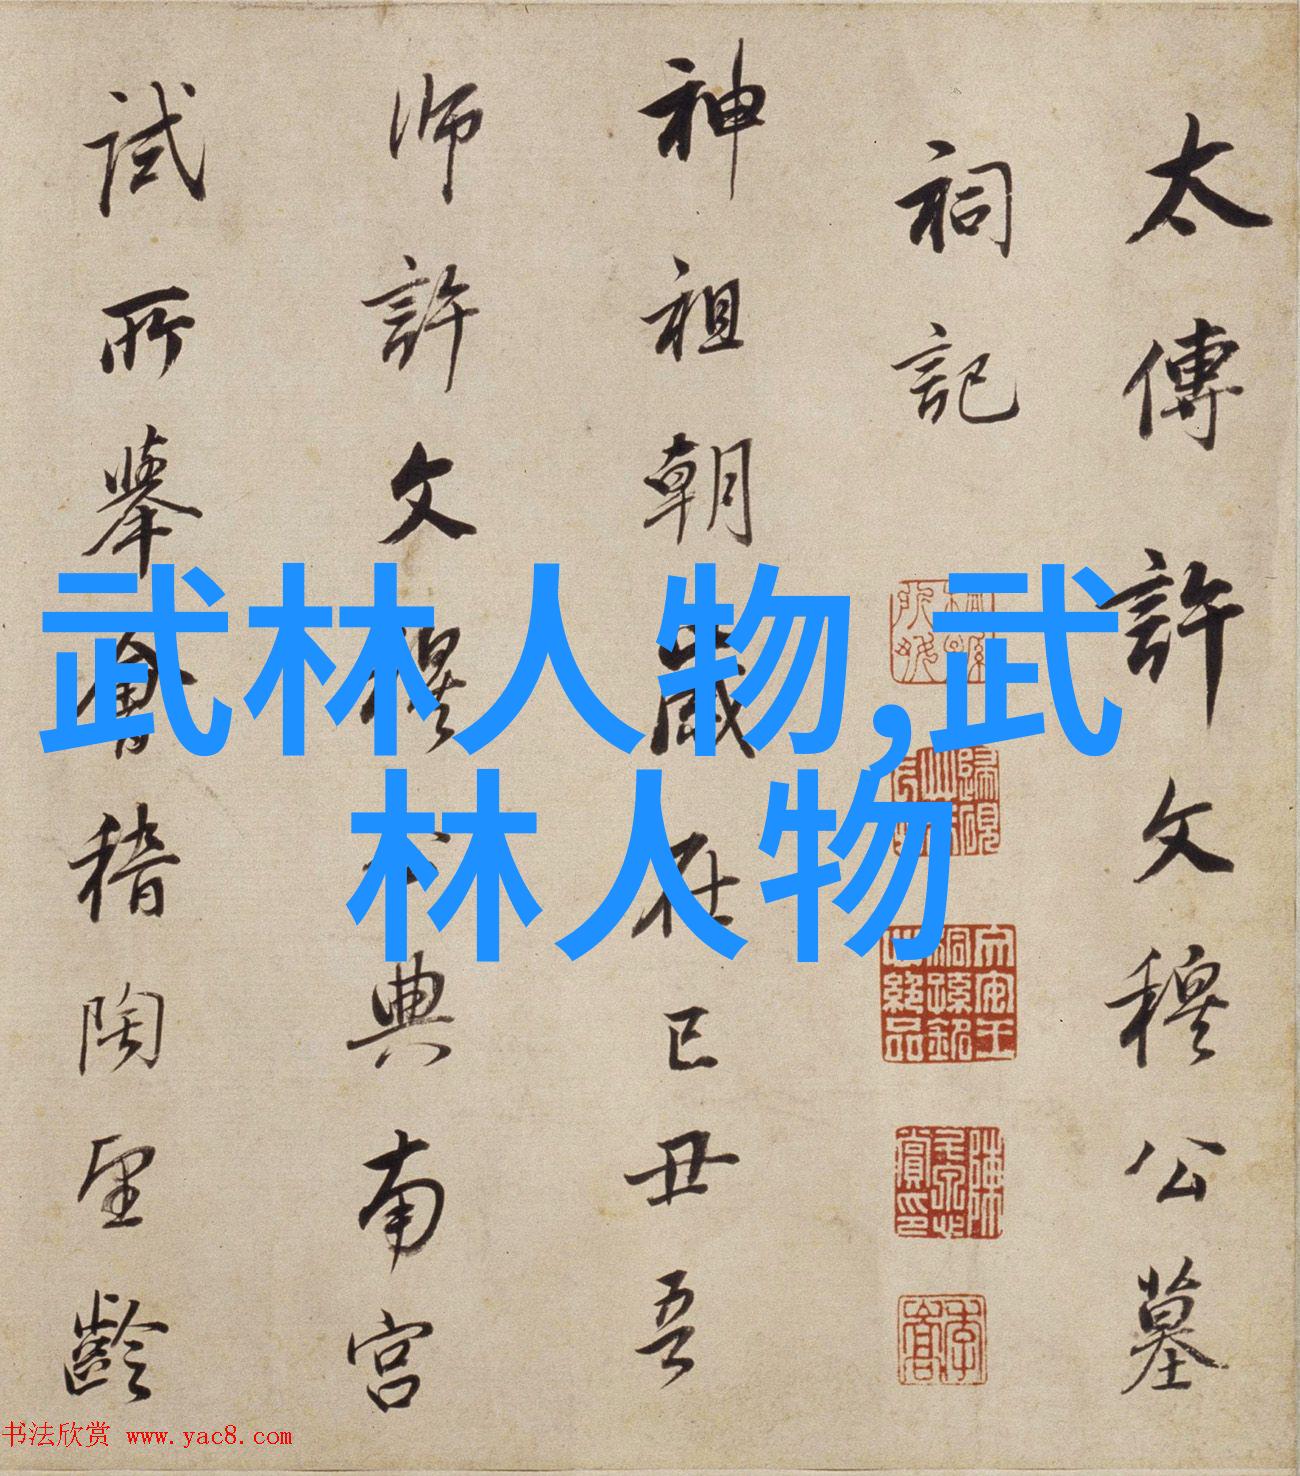 太傳許文穆公墓
祠記
神祖朝歲在己丑吾
師許文穆公典南宮
試所舉會稽陶望齡
武林人物,武
林人物
書法欣赏 www.yac8.com